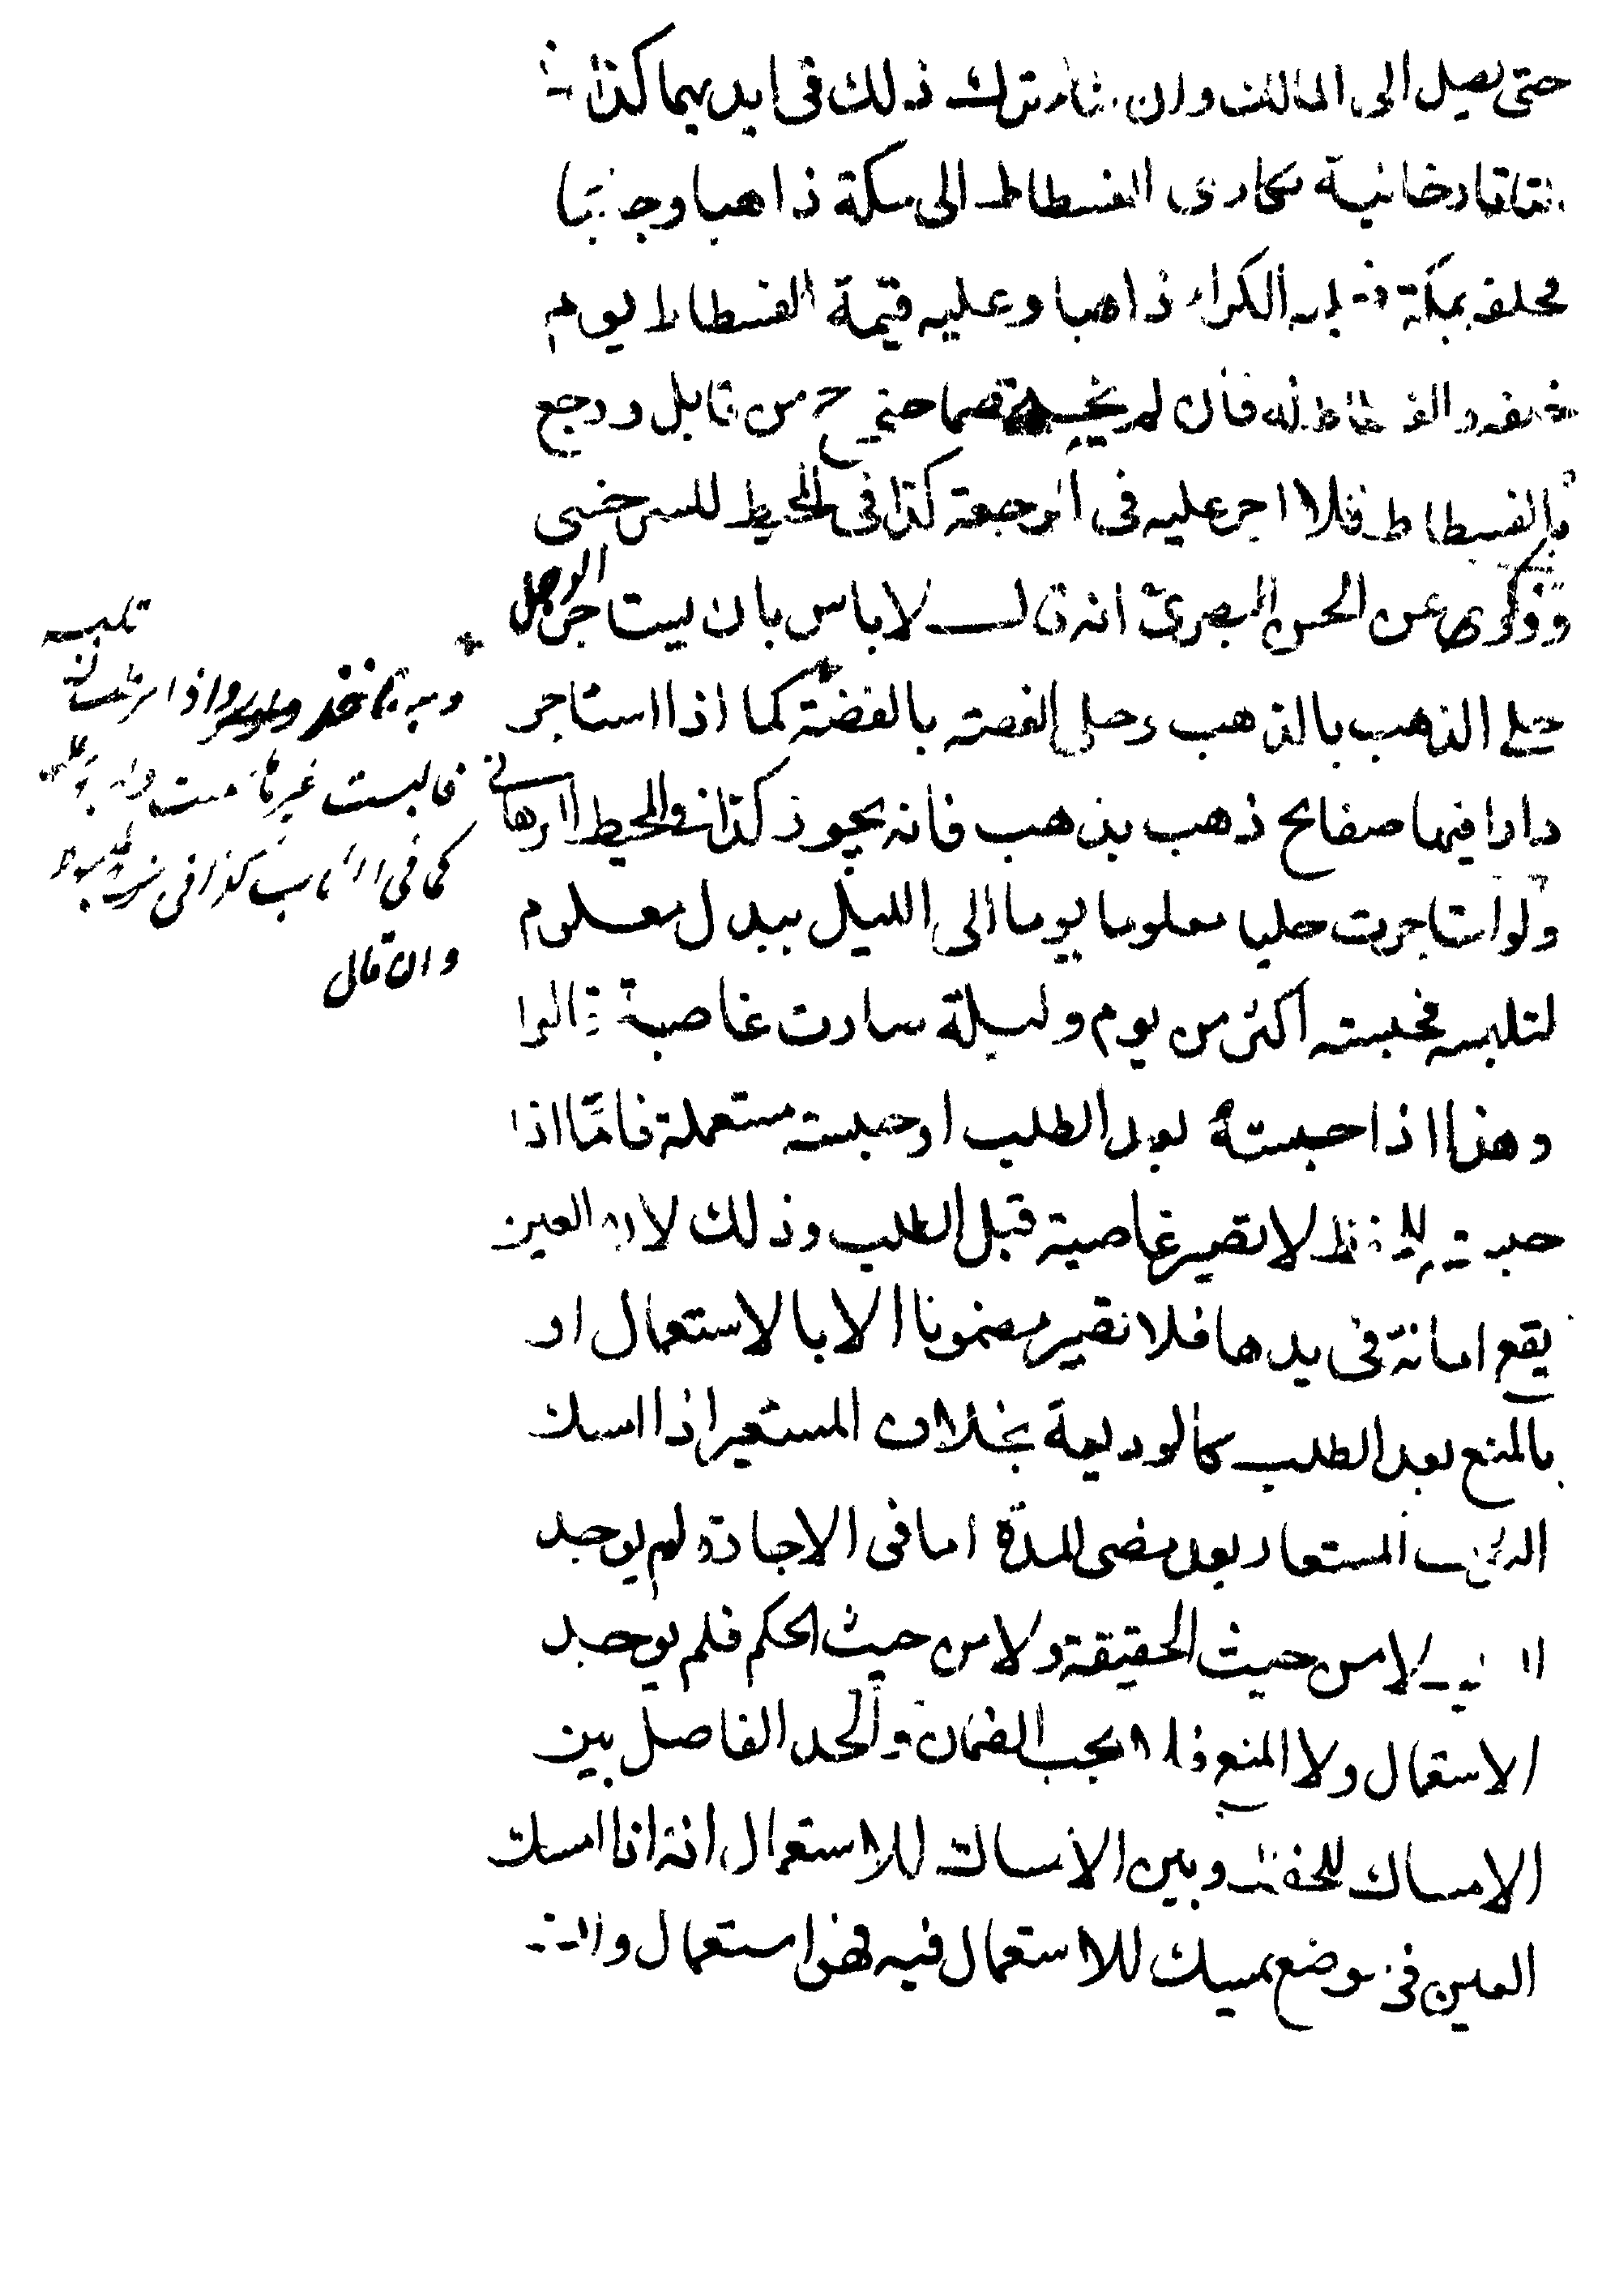 حتى يصل الى المالك وان شاء ترك ذلك فى ايديهما كذا
تتارخانية تكارى الفسطاط الى مكة ذاهبا وجائيا
فخلفه بمكة فعليه الكراء ذاهبا وعليه قيمة الفسطاط يوم
خلفه والفسطاط له فان لم يختصما حتى حج من قابل ورجع
بالفسطاط فلا اجر عليه فى الرجعة كذا فى المحيط للسرخسى
وذكر عن الحسن البصرى انه قال لا باس بان يستاجر الرجل
حلى الذهب بالذهب وحلى الفضة بالفضة كما اذا استاجر
دارا فيها صفايح ذهب بذهب فانه يجوز كذا فى المحيط البرهانى
ولو استاجرت حليا معلوما يوما الى الليل ببدل معلوم
لتلبسه فحبسته اكثر من يوم وليلة صارت غاصبة قالوا
وهذا اذا حبسته بعد الطلب او حبسته مستعملة فامّا اذا
حبسته للحفظ لا تصير غاصبة قبل الطلب وذلك لان العين
يقع امانة فى يدها فلا تصير مضمونا الا بالاستعمال او
بالمنع بعد الطلب كالوديعة بخلاف المستعير اذا امسك
المستعار بعد مضى المدة اما فى الاجارة لم يوجد
لا من حيث الحقيقة ولا من حيث الحكم فلم يوجد
الاستعمال ولا المنع فلا يجب الضمان والحد الفاصل بين
الامساك للحفظ وبين الامساك للاستعمال انه اذا امسك
العين فى موضع يمسك للاستعمال فيه فهذا استعمال وان
تلبسه
وبه ناخذ واذا شرطت ان
فالبست غيرها ضمنت
كما فى الثياب كذا فى
وان قال